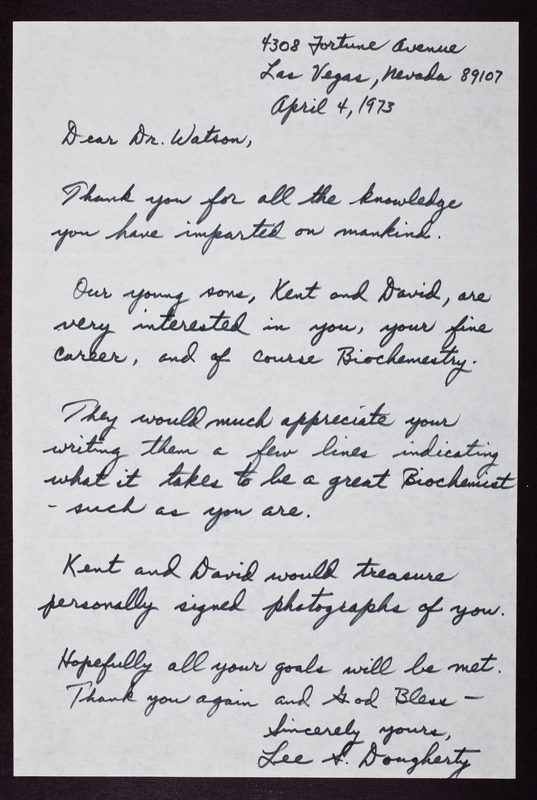 4308 Fortune Avenue
Las Vegas, Nevada 89107
April 4, 1973
Dear Dr. Watson,
Thank you for all the knowledge
you have imparted on mankind.
Our young sons, Kent and David, are
very interested in you, your fine
career, and of course Biochemestry.
They would much appreciate your
writing them a few lines indicating
what it takes to be a great Biochemist
- such as you are.
Kent and David would treasure
personally signed photographs of you.
Hopefully all your goals will be met.
Thank you again and God Bless —
Sincerely yours,
Lee S. Dougherty